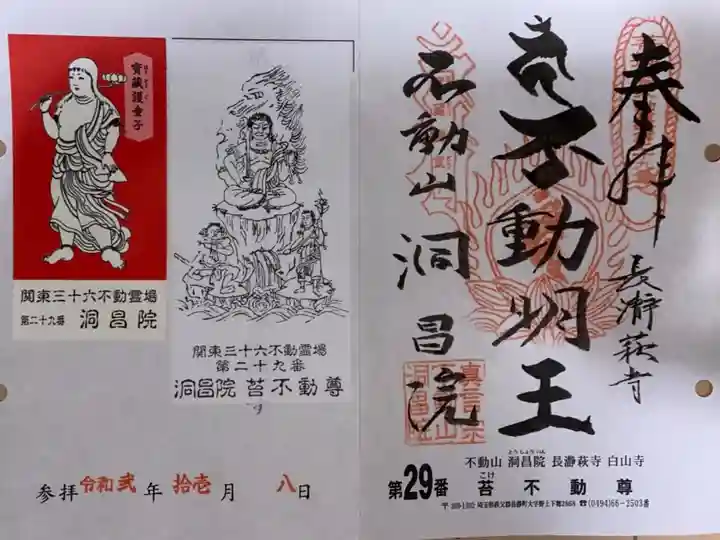 寳藏護童子
関東三十六不動霊場
第二十九番 洞昌院
関東三十六不動霊場
第二十九番
洞昌院 苔不動尊
参拝 令和弐 年 拾壱 月 八 日
奉拝
長瀞萩寺
不動明王
不動山 洞昌院
とうしょういん
不動山 洞昌院 長瀞萩寺 白山寺
こけ
第29番 苔不動尊
埼玉県秩父郡長瀞町大字野上下郷2868 ☎(0494)66-2503番